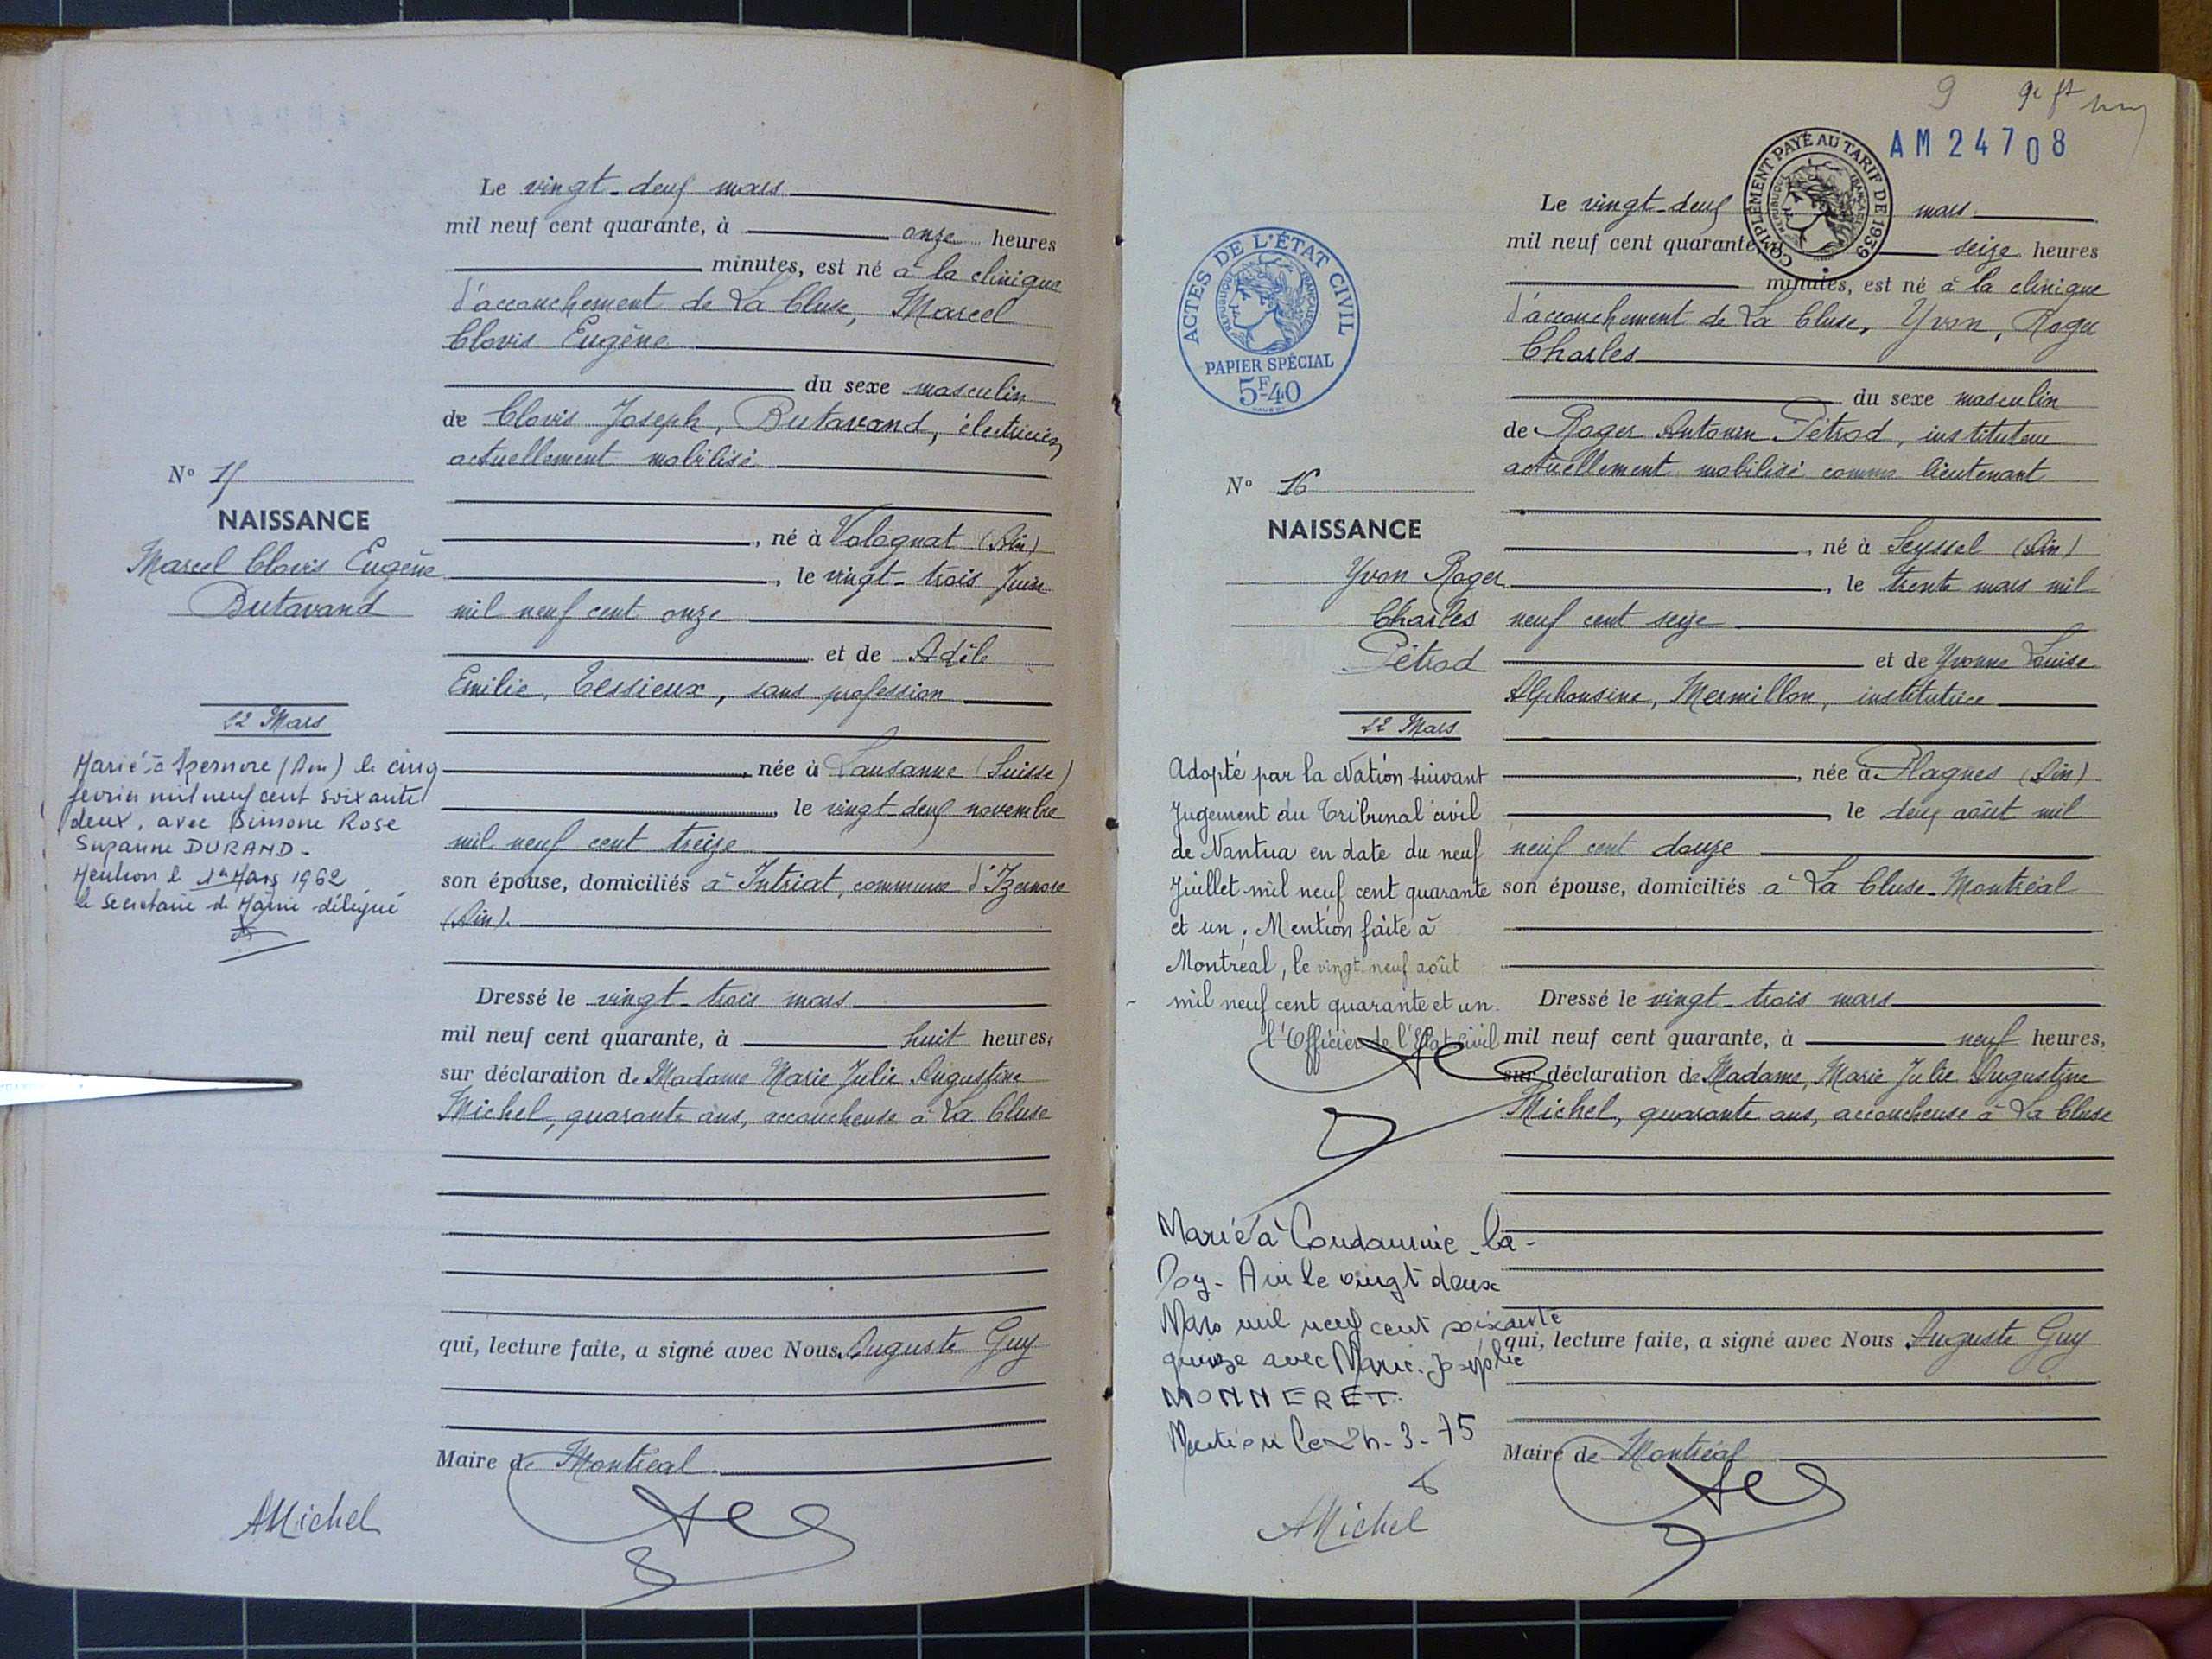 Le vingt-deux mars
mil neuf cent quarante, à onze heures
minutes, est né à la clinique
d'accouchement de La Cluse, Marcel
Clovis Eugène
du sexe masculin
de Clovis Joseph, Butavand, électricien
actuellement mobilisé
, né à Volognat (Ain)
, le vingt-trois Juin
mil neuf cent onze
et de Adèle
Emilie, Tessieux, sans profession
, née à Lausanne (Suisse)
, le vingt-deux novembre
mil neuf cent treize
son épouse, domiciliés à Intriat, commune d'Izernore
(Ain).
Dressé le vingt-trois mars
mil neuf cent quarante, à huit heures,
sur déclaration de Madame Marie Julie Augustine
Michel, quarante ans, accoucheuse à La Cluse
qui, lecture faite, a signé avec Nous Auguste Guy
Maire de Montréal
AMichel
N° 15
NAISSANCE
Marcel Clovis Eugène
Butavand
22 Mars
Marié à Izernore (Ain) le cinq
février mil neuf cent soixante
deux, avec Simone Rose
Suzanne DURAND.
Mention le 1er Mars 1962
le Secrétaire de Mairie délégué
9 9e ft
AM 24708
COMPLÉMENT PAYÉ AU TARIF DE 1939
RÉPUBLIQUE FRANÇAISE
Le vingt-deux mars
mil neuf cent quarante, seize heures
minutes, est né à la clinique
d'accouchement de La Cluse, Yvon, Roger
Charles
du sexe masculin
de Roger Antonin Pétrod, instituteur
actuellement mobilisé comme lieutenant
, né à Seyssel (Ain)
, le trente mars mil
neuf cent seize
et de Yvonne Louise
Alphonsine, Mermillon, institutrice
, née à Plagnes (Ain)
, le deux août mil
neuf cent douze
son épouse, domiciliés à La Cluse-Montréal
Dressé le vingt-trois mars
mil neuf cent quarante, à neuf heures,
sur déclaration de Madame, Marie Julie Augustine
Michel, quarante ans, accoucheuse à La Cluse
qui, lecture faite, a signé avec Nous Auguste Guy
Maire de Montréal
ACTES DE L'ÉTAT CIVIL
RÉPUBLIQUE FRANÇAISE
PAPIER SPÉCIAL
5F40
N° 16
NAISSANCE
Yvon Roger
Charles
Pétrod
22 Mars
Adopté par la Nation suivant
Jugement du Tribunal civil
de Nantua en date du neuf
Juillet mil neuf cent quarante
et un; Mention faite à
Montréal, le vingt-neuf août
mil neuf cent quarante et un.
l'Officier de l'Etat Civil
Marié à Condamine-la-
Doy-Ain le vingt deux
Mars mil neuf cent soixante
quinze avec Marie-Josèphe
MONNERET
Mention le 3-75
AMichel